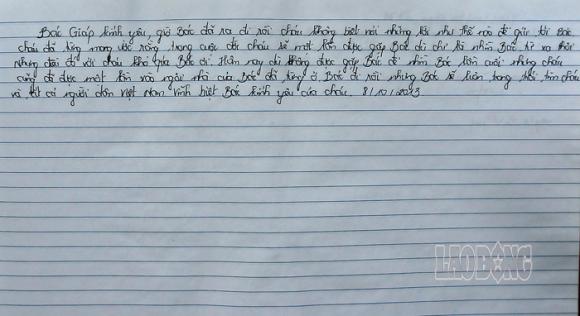 Bác Giáp kính yêu, giờ Bác đã ra đi rồi cháu không biết nói những lời như thế nào để gửi tới Bác
cháu đã từng mong ước rằng trong cuộc đời cháu sẽ một lần được gặp Bác dù chỉ là nhìn Bác từ xa thôi
nhưng điều đó với cháu khó quá Bác ơi. Hôm nay dù không được gặp Bác để nhìn Bác lần cuối nhưng cháu
cũng đã được một lần vào ngôi nhà của Bác đã từng ở, Bác đi rồi nhưng Bác sẽ luôn trong trái tim cháu
và tất cả người dân Việt Nam Vĩnh biệt Bác kính yêu của cháu. 8/10/2013
LAO ĐỘNG